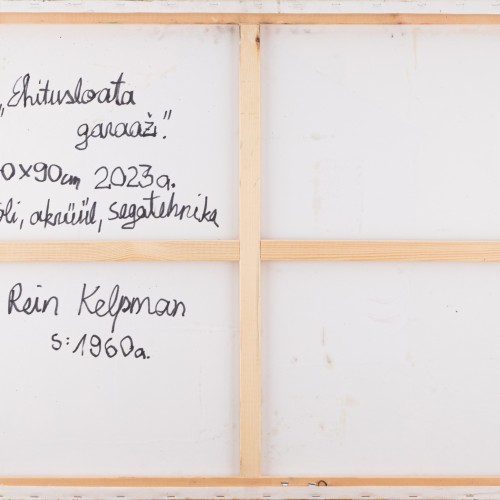 „Ehitusloata
garaaži."
0x90cm 2023a.
õli, akrüül, segatehnika
Rein Kelpman
s:1960a.